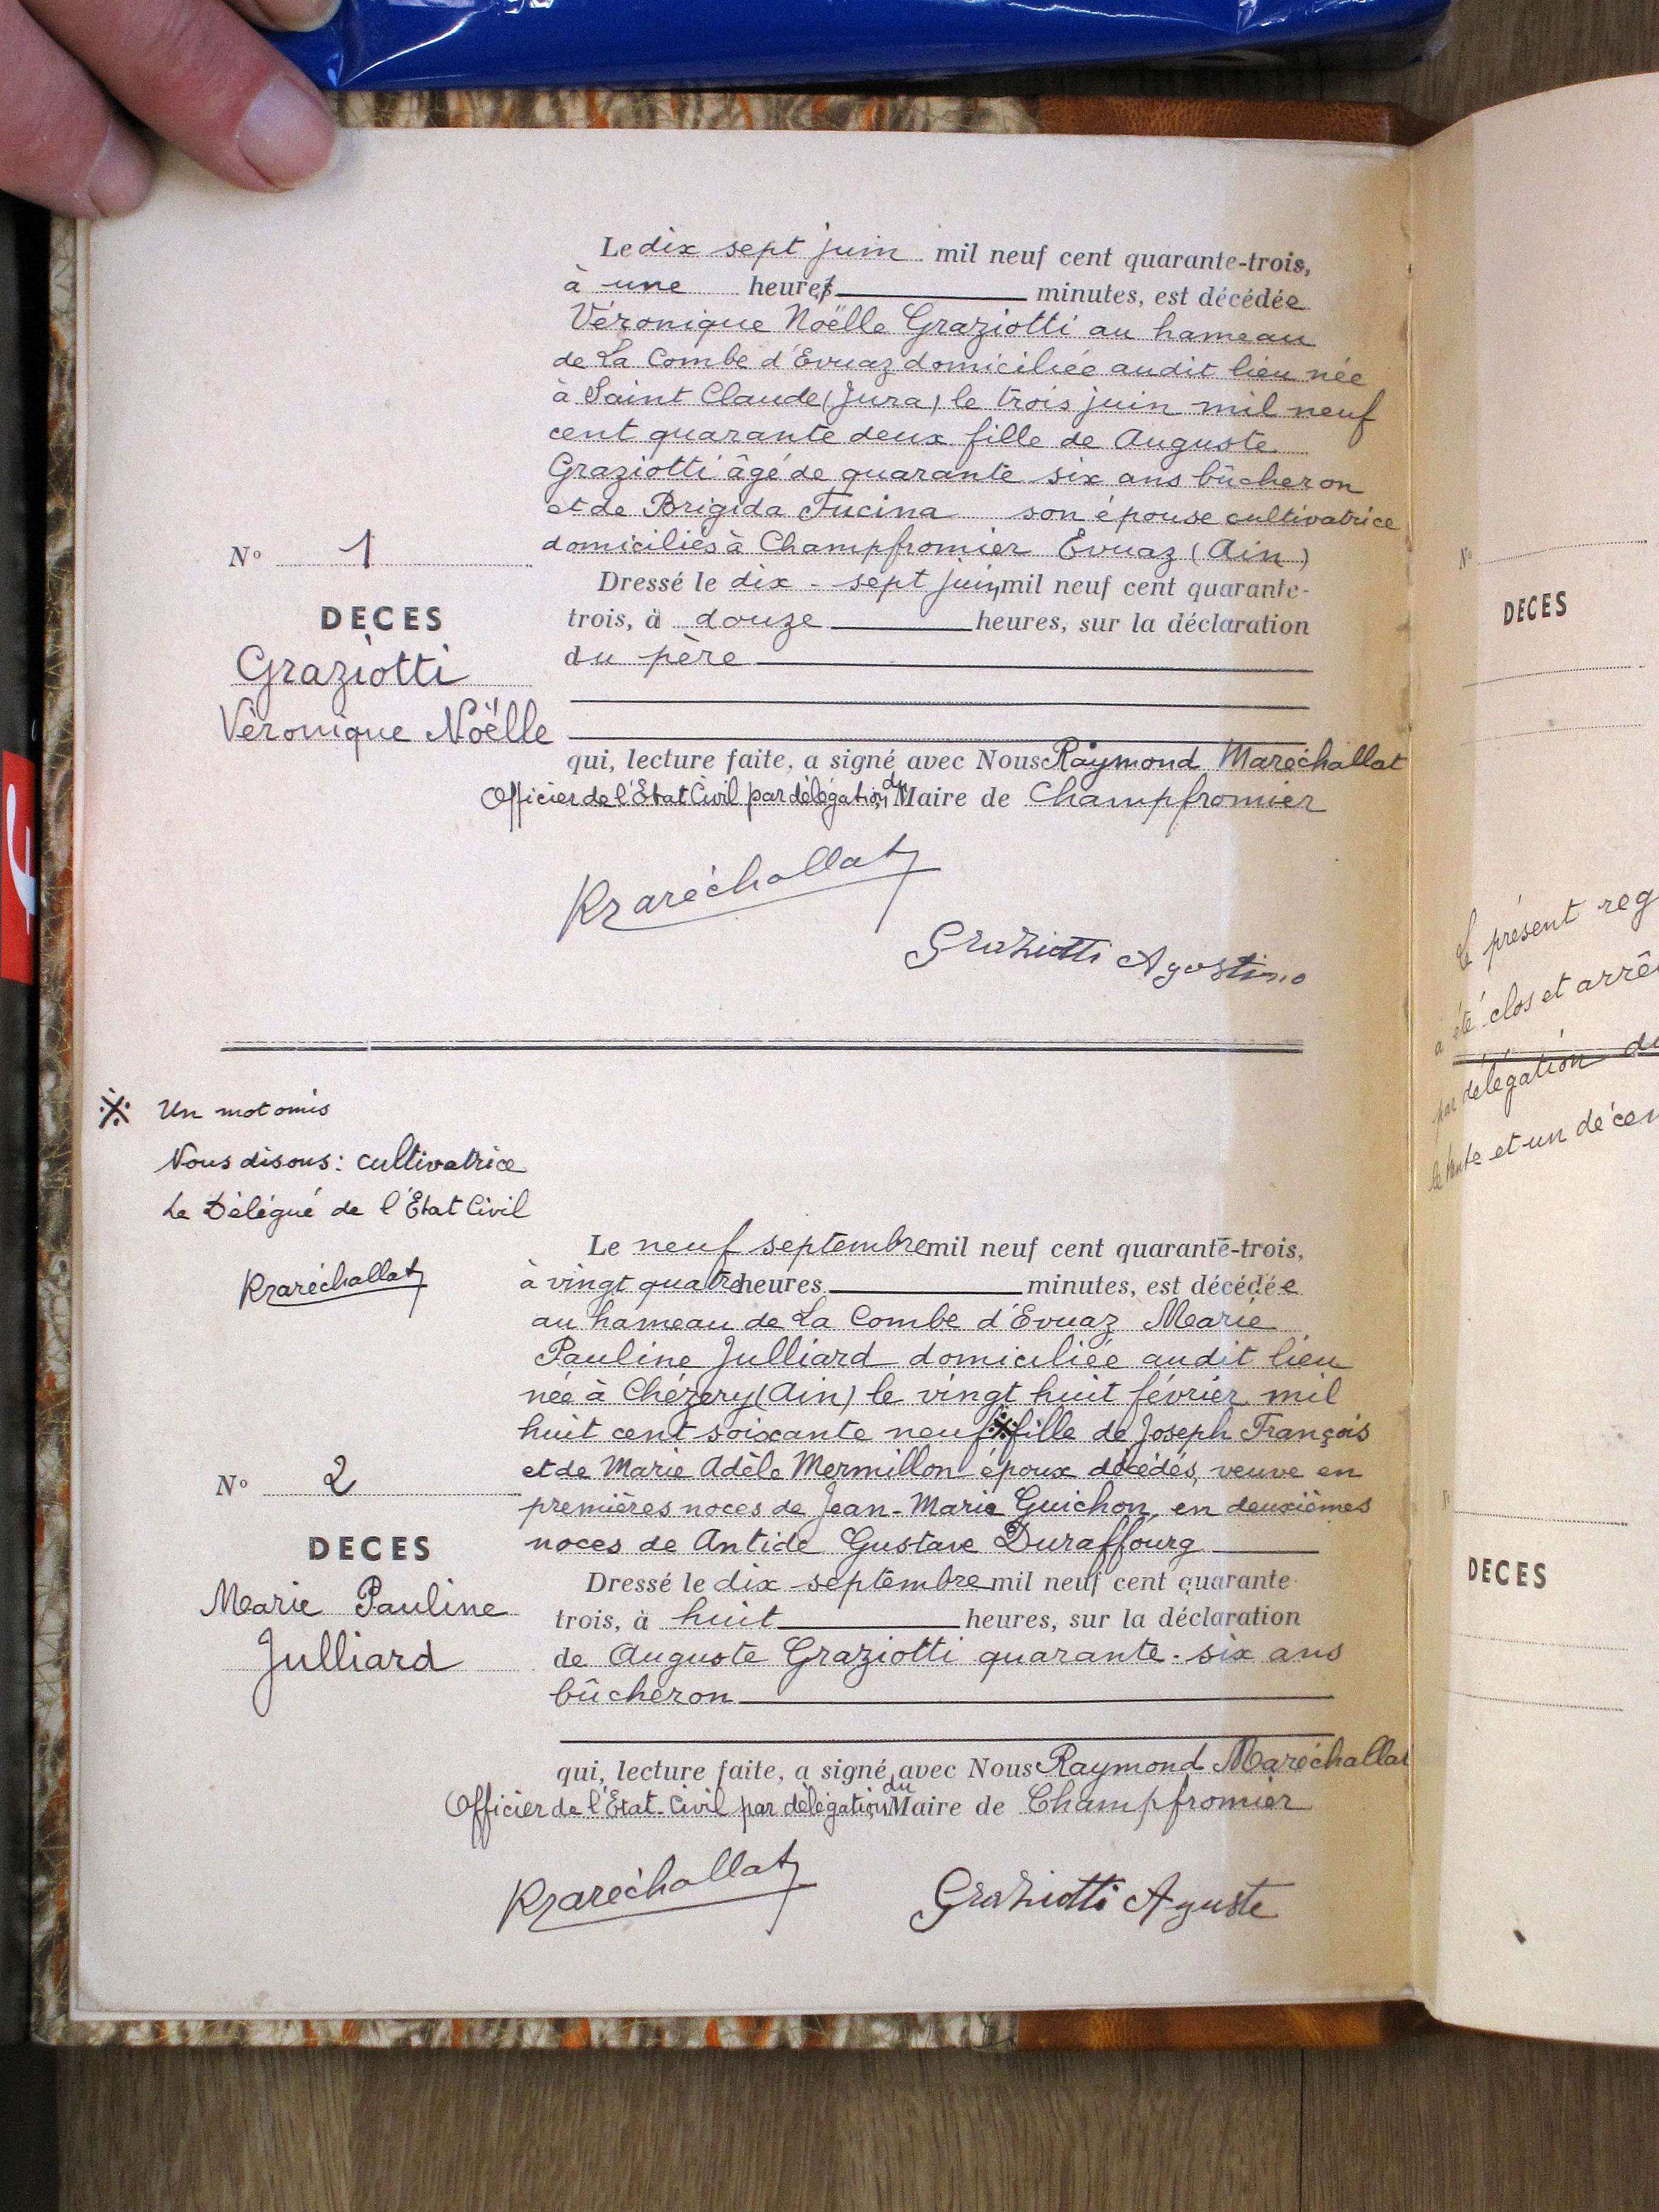 Le dix sept juin mil neuf cent quarante-trois,
à une heures minutes, est décédée
Véronique Noëlle Graziotti au hameau
de La Combe d'Evuaz domiciliée audit lieu née
à Saint Claude (Jura) le trois juin mil neuf
cent quarante deux fille de Auguste
Graziotti âgé de quarante six ans bûcheron
et de Brigida Fucina son épouse cultivatrice
domiciliés à Champfromier Evuaz (Ain)
Nº 1
DECES
Graziotti
Véronique Noëlle
Dressé le dix-sept juin mil neuf cent quarante-
trois, à douze heures, sur la déclaration
du père
qui, lecture faite, a signé avec Nous Raymond Maréchallat
Officier de l'Etat Civil par délégation du Maire de Champfromier
RMaréchallat
Graziotti Agostino
※ Un mot omis
Nous disons: cultivatrice
Le Délégué de l'Etat Civil
RMaréchallat
Le neuf septembre mil neuf cent quarante-trois,
à vingt quatre heures minutes, est décédée
au hameau de La Combe d'Evuaz Marie
Pauline Julliard domiciliée audit lieu
née à Chézery (Ain) le vingt huit février mil
huit cent soixante neuf ※ fille de Joseph François
et de Marie Adèle Mermillon époux décédés, veuve en
premières noces de Jean-Marie Guichon, en deuxièmes
noces de Antide Gustave Duraffourg
Nº 2
DECES
Marie Pauline
Julliard
Dressé le dix septembre mil neuf cent quarante-
trois, à huit heures, sur la déclaration
de Auguste Graziotti quarante-six ans
bûcheron
qui, lecture faite, a signé avec Nous Raymond Maréchallat
Officier de l'Etat-Civil par délégation du Maire de Champfromier
RMaréchallat
Graziotti Aguste
Nº
DECES
Le présent reg
a été clos et arrê
par délégation du
le trente et un décem
DECES